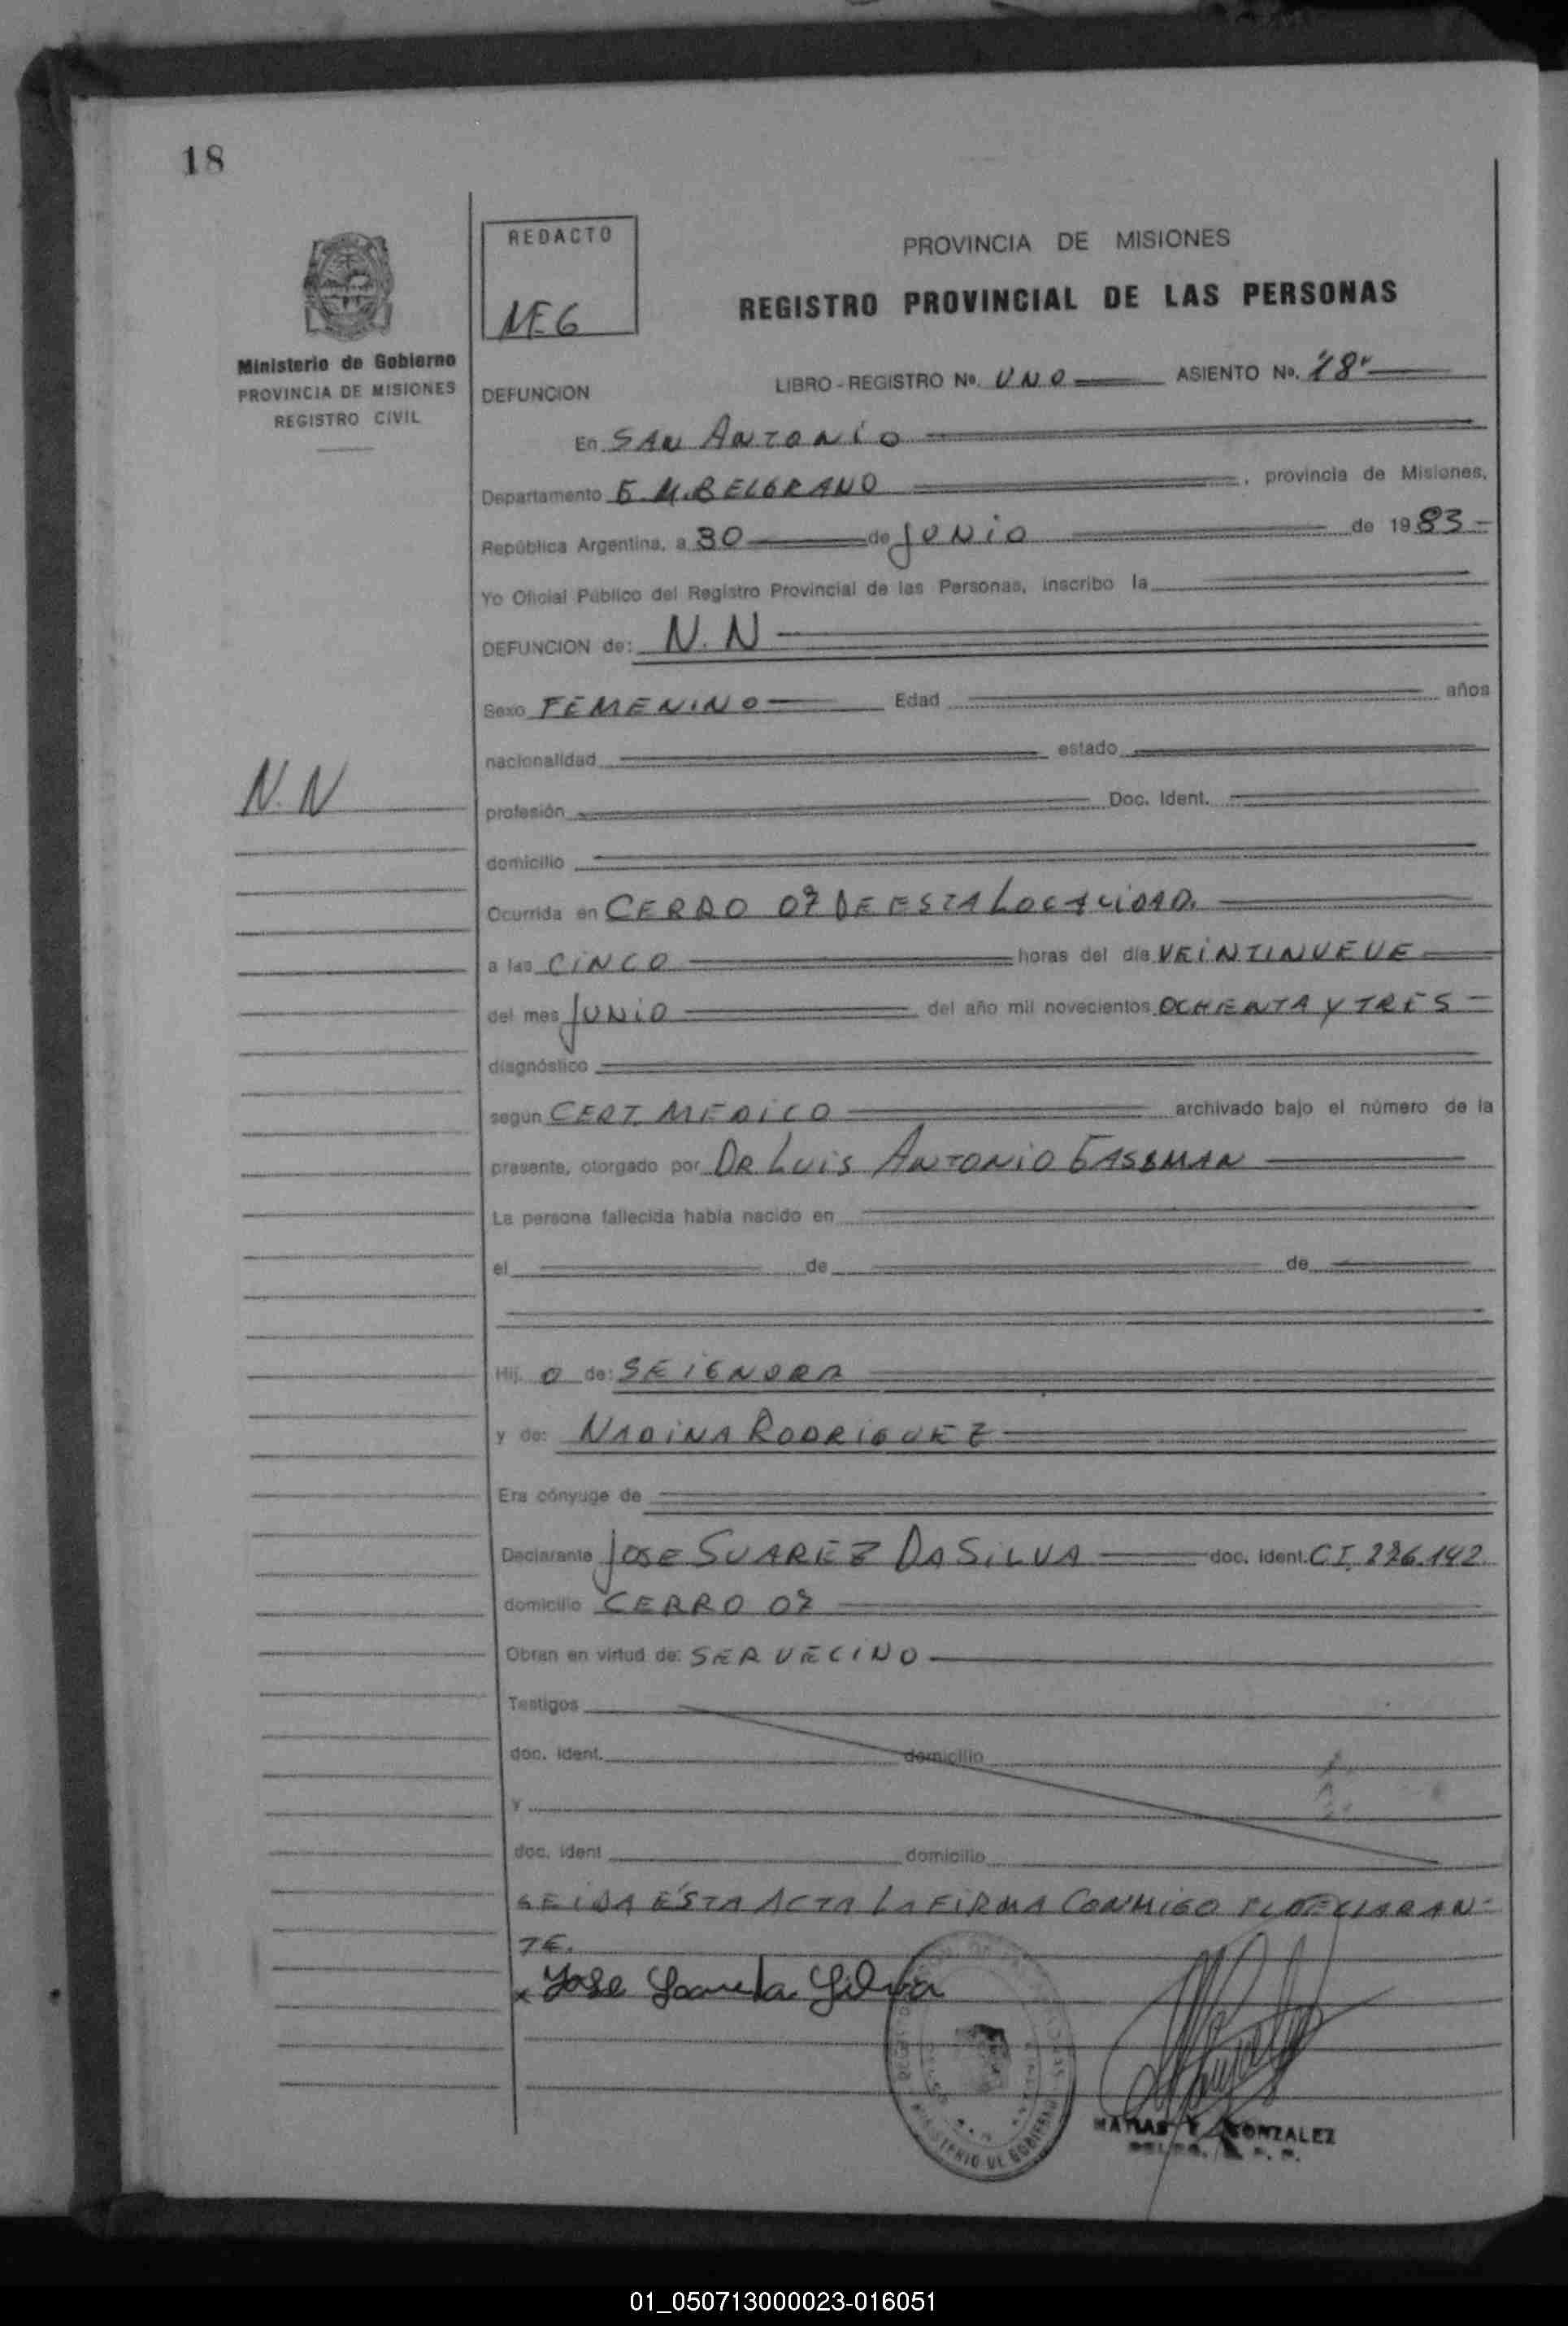 18
REDACTO
PROVINCIA DE MISIONES
REGISTRO PROVINCIAL DE LAS PERSONAS
Ministerio de Gobierno
PROVINCIA DE MISIONES
REGISTRO CIVIL
DEFUNCION LIBRO - REGISTRO Nº. UNO ASIENTO Nº. "18"
En SAN ANTONIO
Departamento G. M. BELGRANO, provincia de Misiones,
República Argentina, a 30 de JUNIO de 1983-
Yo Oficial Público del Registro Provincial de las Personas, inscribo la
DEFUNCION de: N. N
Sexo FEMENINO Edad años
nacionalidad estado
N. N
profesión Doc. Ident.
domicilio
Ocurrida en CERRO 07 DE ESTA LOCALIDAD.
a las CINCO horas del día VEINTINUEVE
del mes JUNIO del año mil novecientos OCHENTA Y TRES -
diagnóstico
según CERT. MEDICO archivado bajo el número de la
presente, otorgado por DR LUIS ANTONIO
La persona fallecida había nacido en
el de de
Hij o de: SE IGNORA
y de: NADINA RODRIGUEZ
Era cónyuge de
Declarante JOSE SUAREZ DA SILVA doc. Ident. C I.
domicilio CERRO 07
Obran en virtud de: SER VECINO
Testigos
doc. ident. domicilio
y
doc. ident domicilio
LEIDA ESTA ACTA LA FIRMA CONMIGO EL DECLARAN-
TE.
x Jose Silva
MINISTERIO DE GOBIERNO
MATIAS GONZALEZ
01_050713000023-016051